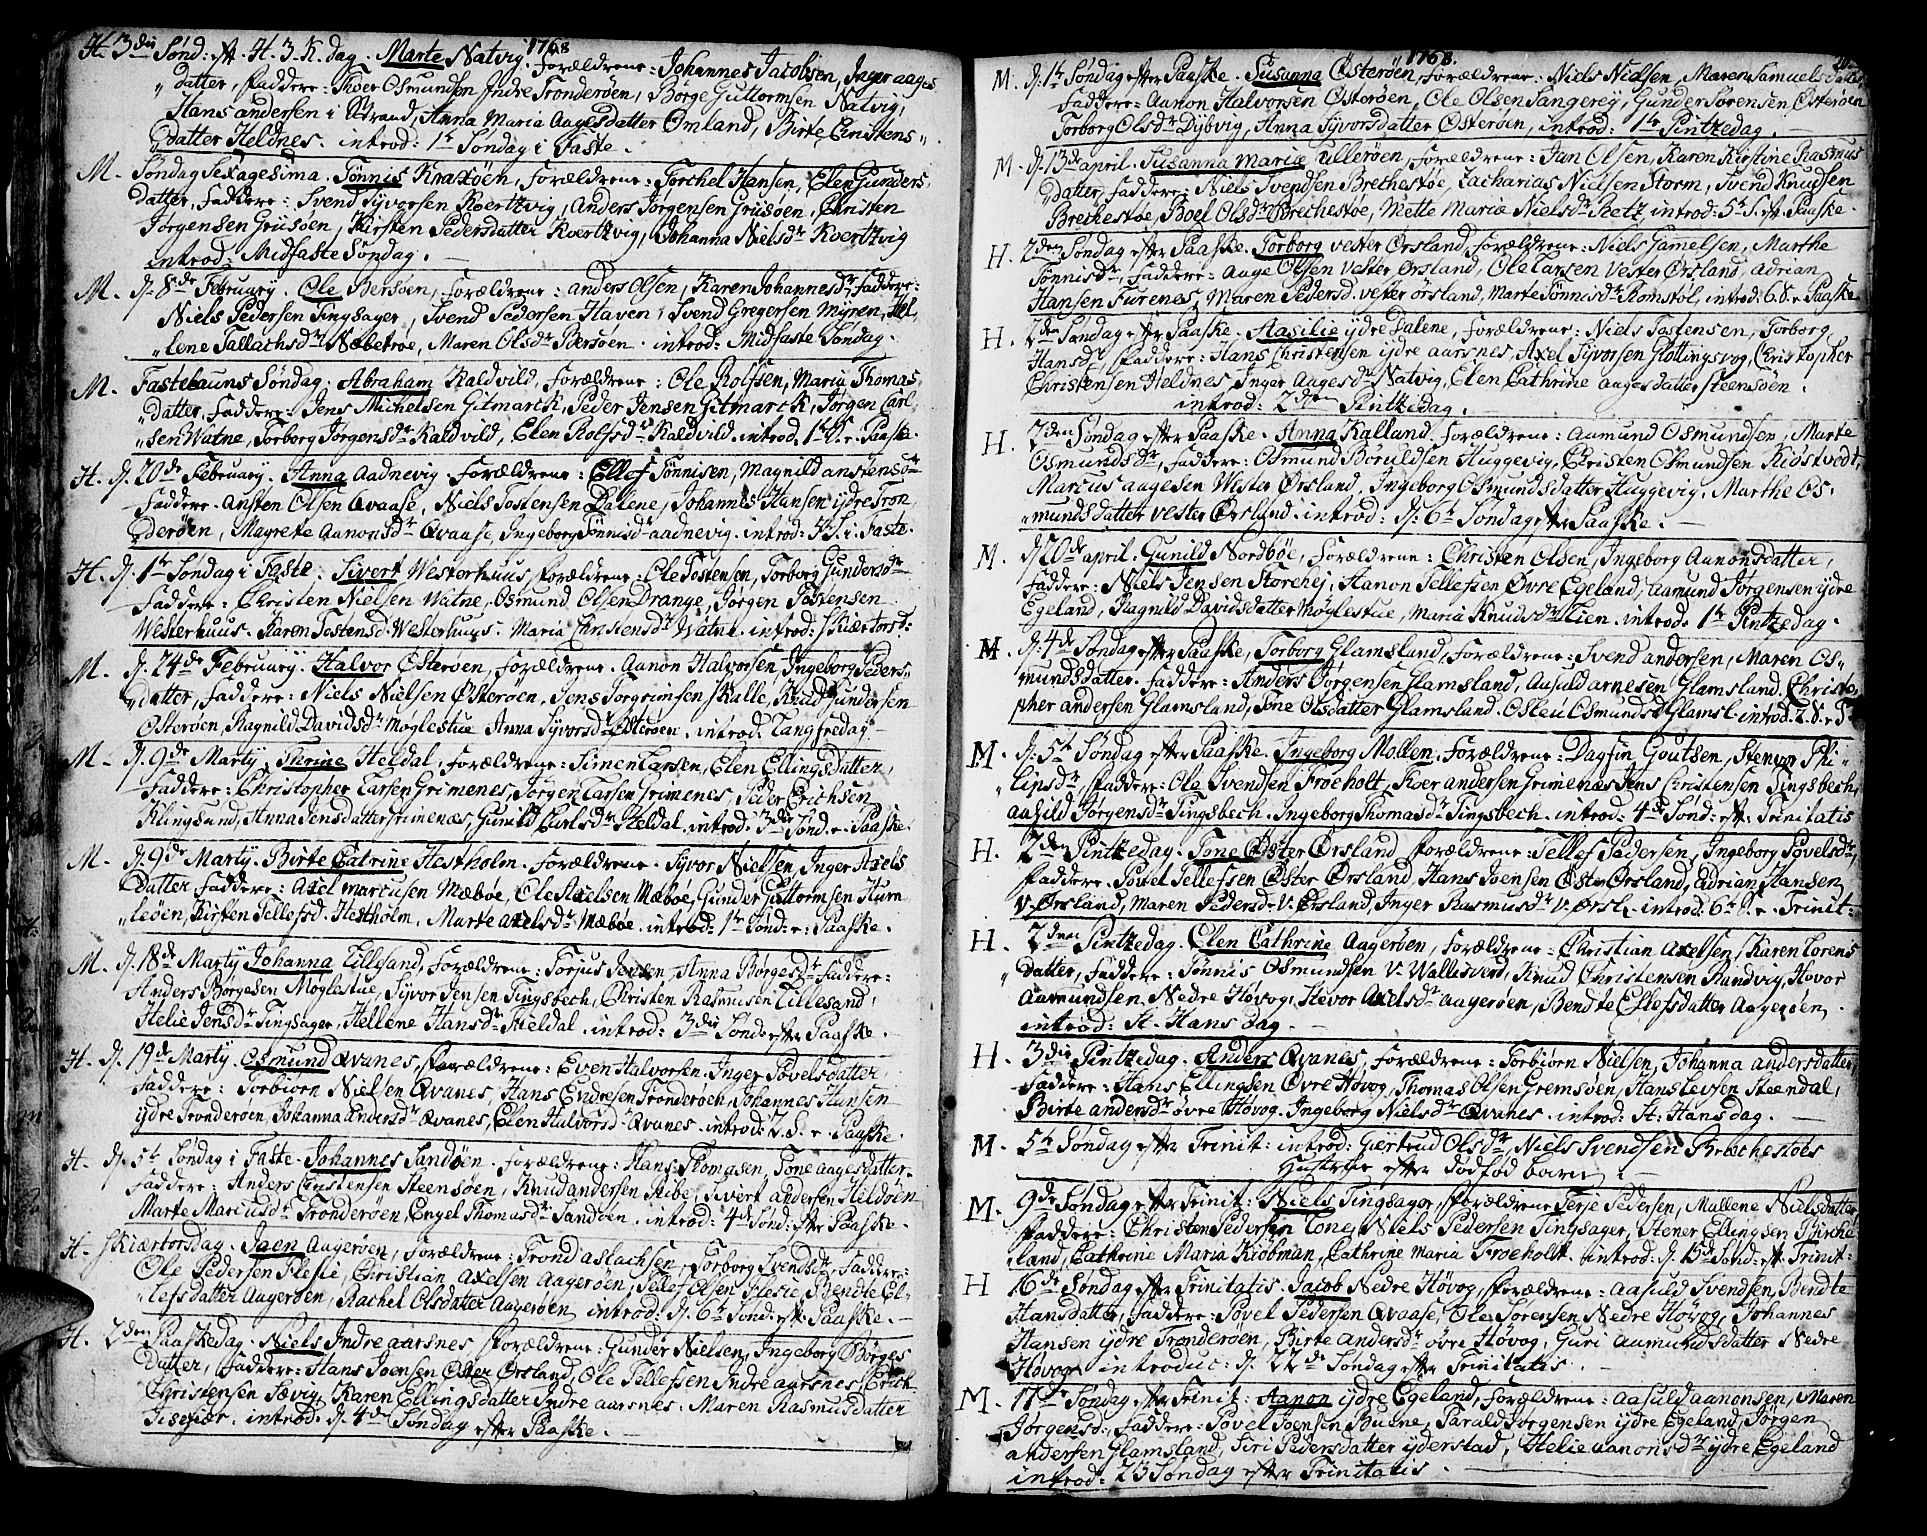 1768
H. 3die Sønd: eft. H. 3. K. dag. Marte Natvig. Forældrene: Johannes Jacobsen, Inger Aages
datter, Faddere: Thoer Osmundsen Indre Tronderøen, Børge Guttormsen Natvig,
Hans andersen i Strand, Anna Maria Aagesdatter Omland, Birte Christens
datter Heldnes. introd: 1te Søndag i Faste.
M. Søndag Sexagesima. Tønnis Kraxøen, Forældrene: Torchel Hansen, Elen Gunders
datter, Faddere: Svend Syvorsen Koertzvig, Anders Jørgensen Griisøen, Christen
Jørgensen Griisøen, Kirsten Pedersdatter Koertzvig, Johanna Nielsdr Koertzvig
introd: Midfaste Søndag.
M. d. 8de February. Ole Bersøen, Forældrene: anders Olsen, Karen Johannesdr, Faddere:
Niels Pedersen Tingsager, Svend Pedersen Haven, Svend Gregersen Myren, Hel
lene Tallachsdr Næbetrøe, Maren Olsdr Bersøen. introd: Midfaste Søndag.
M. Fastelauns Søndag. Abraham Kaldvild, Forældrene: Ole Rolfsen, Maria Thomas
datter, Faddere: Jens Michelsen Gitmarck, Peder Jensen Gitmarck, Jørgen Carl
sen Watne, Torborg Jørgensdr Kaldvild, Elen Rolfsdr Kaldvild. introd. 1te S. e. Paaske.
H. d. 20de February. Anna Aadnevig. Forældrene: Ellef Tønnisen, Magnild anstensdr
Faddere. Ansten Olsen Qvaase, Niels Tostensen Dalene, Johannes Hansen ydre Tron
derøen, Magrete Aanonsdr Qvaase, Ingeborg Tønnisdr aadnevig. introd: 4. S. i. Faste.
H. d. 1te Søndag i Faste. Sivert Westerhuus, Forældrene: Ole Tostensen, Torborg Gundersdr
Faddere: Christen Nielsen Watne, Osmund Olsen Drange, Jørgen Tostensen
Westerhuus. Karen Tostensd. Westerhuus. Maria Christensdr Watne. introd: Skiærtorsd:
M. d. 24de February. Halvor Østerøen, Forældrene. Aanon Halvorsen, Ingeborg Peders
datter, Faddere: Niels Nielsen Østerøen, Jens Torgrimsen Skalle, Knud Gundersen
Østerøen, Ragnild Davidsdr Møglestue Anna Syvorsdr Østerøen. introd. Langfredag
M. d. 9de Marty. Thrine Heldal, Forældrene: Simen Larsen, Elen Ellingsdatter,
Faddere: Christopher Larsen Grimenes, Jørgen Larsen Grimenes, Peder Erichsen
Klingsund, Anna Jensdatter Grimenæs, Gunild Carlsdr Heldal. introd. 3die Sønd. e. Paaske.
M. d. 9de Marty. Birte Catrine Hestholm. Forældrene. Syvor Nielsen, Inger Axels
datter Faddere: Axel Marcusen Mæbøe, Ole Axelsen Mæbøe, Gunder Guttormsen Hurn
leøen, Kirsten Tellefsd. Hestholm, Marte axelsdr Mæbøe. introd: 1te Sønd: e: Paaske.
M. d. 18de Marty Johanna Lillesand, Forældrene: Torjus Jensen Anna Børgesdr Faddere:
Anders Børgesen Møglestue, Syvor Jensen Tingsbech, Christen Rasmusen Lillesand,
Helie Jensdr Tingsager, Hellene Hansdr Hieldal. introd: 3die Sønd: efter Paaske.
H. d. 19de Marty. Osmund Qvanes, Forældrene: Even Halvorsen. Inger Povelsdatter,
Faddere: Torbiørn Nielsen Qvanes, Hans Endresen Tronderøen, Johannes Hansen
ydre Tronderøen, Johanna andersdr Qvanes, Elen Halvorsd. Qvanes. introd: 2. S. e. Paaske.
H. d. 5te Søndag i Faste. Johannes Sandøen. Forældrene: Hans Thomasen, Tone Aagesdatter.
Faddere: Anders Christensen Steensøen, Knud andersen Ribe, Sivert andersen Heldøen
Marte Marcusdr Tronderøen, Engel Thomasdr Sandøen. introd: 4de Sønd: efter Paaske.
H. Skiærtorsdag. Jaen Aagerøen, Forældrene: Trond Aslachsen, Torborg Svendsdr, Faddere:
Ole Pedersen Flesie, Christian Axelsen Aagerøen, Tellef Olsen Flesie, Bendte El
lefsdatter Aagerøen, Rachel Olsdatter Aagerøen introd: d. 6te Sønd: eft. Paaske.
H. 2den Paaskedag. Niels Indre aarsnes, Forældrene: Gunder Nielsen, Ingeborg Børges
datter, Faddere: Hans Joensen Øster Ørsland, Ole Tellefsen Indre aarsnes, Erich
Christensen Sævig, Karen Ellingsdatter Indre aarsnes. Maren Rasmusdatter
Isefiær. introd: d. 4de Søndag efter Paaske.
1768.
M. d. 1te Søndag efter Paaske. Susanna Østerøen, Forældrene: Niels Nielsen, Maren Samuelsdatter
Faddere: Aanon Halvorsen Østerøen, Ole Olsen Sangerey, Gunder Sørensen Østerøen
Torborg Olsdr Dybvig, Anna Syvorsdatter Østerøen, introd: 1te Pintzedag.
M. d. 13de april. Susanna Maria Ullerøen, Forældrene: Jan Olsen, Karen Kirstine Rasmus
datter, Faddere: Niels Svendsen Brechestøe, Zacharias Nielsen Storm, Svend Knudsen
Brechestøe, Boel Olsdr Brechestøe, Mette Maria Nielsdr Betz, introd: 5te S. eft. Paaske.
H. 2den Søndag efter Paaske. Torborg vester Ørsland, Forældrene: Niels Gamelsen, Marthe
Tønnisdr, Faddere: Aage Olsen Vester Ørsland, Ole Larsen Vester Ørsland, Adrian
Hansen Furenes, Maren Pedersd. vester ørsland, Marte Tønnisdr Romstøl, introd: 6. S. e. Paaske
H. 2den Søndag efter Paaske. Aasilie ydre Dalene, Forældrene: Niels Tostensen, Torborg
Hansdr, Faddere: Hans Christensen ydre aarsnes, Axel Syvorsen Glottingsvog, Christopher
Christensen Heldnes, Inger Aagesdr Natvig, Elen Cathrine aagesdatter Steensøen.
introd: 2den Pintzedag.
H. 2den Søndag efter Paaske. Anna Kalland. Forældrene: Aamund Osmundsen, Marte
Osmundsdr, Faddere: Osmund Boruldsen Huggevig, Christen Osmundsen Kiøstvedt,
Marcus aagesen Wester Ørsland, Ingeborg Osmundsdatter Huggevig. Marthe Os
mundsdatter vester Ørsland. introd: d: 6te Søndag efter Paaske.
M. d. 20de april. Gunild Nordbøe, Forældrene: Christen Olsen, Ingeborg Aanonsdatter,
Faddere: Niels Jensen Storehej, Aanon Tellefsen Øvre Egeland, Aamund Jørgensen ydre
Egeland, Ragnild Davidsdatter Møglestue, Maria Knudsdr Lien. introd: 1te Pintzedag.
M. d. 4de Søndag efter Paaske, Torborg Glamsland, Forældrene: Svend andersen, Maren Os
mundsdatter. Faddere: Anders Jørgensen Glamsland, Aasuld arnesen Glamsland. Christo
pher andersen Glamsland, Tone Olsdatter Glamsland. Osleu Osmundsd Glamsl. introd. 2. S. e. T.
M. d. 5te Søndag efter Paaske. Ingeborg Mollen. Forældrene: Dagfin Goutsen, Stenvor Phi
lipsdr, Faddere: Ole Svendsen Froeholt, Tioer andersen Grimenæs, Jens Christensen Tingsbech,
Aasild Jørgensdr Tingsbech. Ingeborg Thomasdr Tingsbech. introd: 4de Sønd: eft. Trinitatis
H. 2den Pintzedag. Tone Øster Ørsland Forældrene: Tellef Pedersen, Ingeborg Povelsdr,
Faddere. Povel Tellefsen Øster Ørsland, Hans Joensen Øster Ørsland, Adrian Hansen
V. Ørsland, Maren Pedersd. V. Ørsland, Inger Rasmusdr V. Ørsl. introd: 6te S. e. Trinit:
H. 2den Pintzedag. Elen Cathrine Aagerøen, Forældrene: Christian Axelsen, Karen Lorens
datter, Faddere: Tønnis Osmundsen V. Wallesverd, Knud Christensen Rundvig, Hovor
Aamundsen Nedre Høvog, Stevor Axelsdr aagerøen, Bendte Ellefsdatter Aagerøen,
introd: St. Hans dag.
H. 3die Pintzedag. Anders Qvanes, Forældrene: Torbiørn Nielsen, Johanna andersdatter,
Faddere: Hans Ellingsen Øvre Høvog, Thomas Olsen Gremsøen, Hans Levsen Steendal,
Birte andersdr øvre Høvog. Ingeborg Nielsdr Qvanes. introd: St: Hans dag.
M. 5te Søndag efter Trinit: introd: Giertrud Olsdr, Niels Svendsen Brechestøes
Hustrue efter dødfød barn.
M. 9de Søndag efter Trinit: Niels Tingsager, Forældrene Terje Pedersen, Mallene Nielsdatter,
Faddere: Christen Pedersen Tone, Niels Pedersen Tingsager, Stener Ellingsen Birche
land, Cathrine Maria Kiöbman, Cathrine Maria Froeholt. introd: d. 15de Sønd: eft. Trinit:
H 16de Søndag efter Trinitatis. Jacob Nedre Høvog, Forældrene: Aasuld Svendsen, Bendte
Hansdatter, Faddere: Povel Pedersen Qvaase, Ole Sørensen Nedre Høvog, Johannes
Hansen ydre Tronderøen, Birte andersdr øvre Høvog, Guri aamundsdatter Nedre
Høvog introduc: d. 22de Søndag efter Trinitatis.
M. 17de Søndag efter Trinit: Aanon ydre Egeland, Forældrene: Aasuld aanonsen, Maren
Jørgensd: Faddere: Povel Joensen Buene, Tarald Jørgensen ydre Egeland, Jørgen
andersen Glamsland, Siri Pedersdatter yderstad, Helie aanonsdr ydre Egeland
introd: 23 Søndag efter Trinitatis.